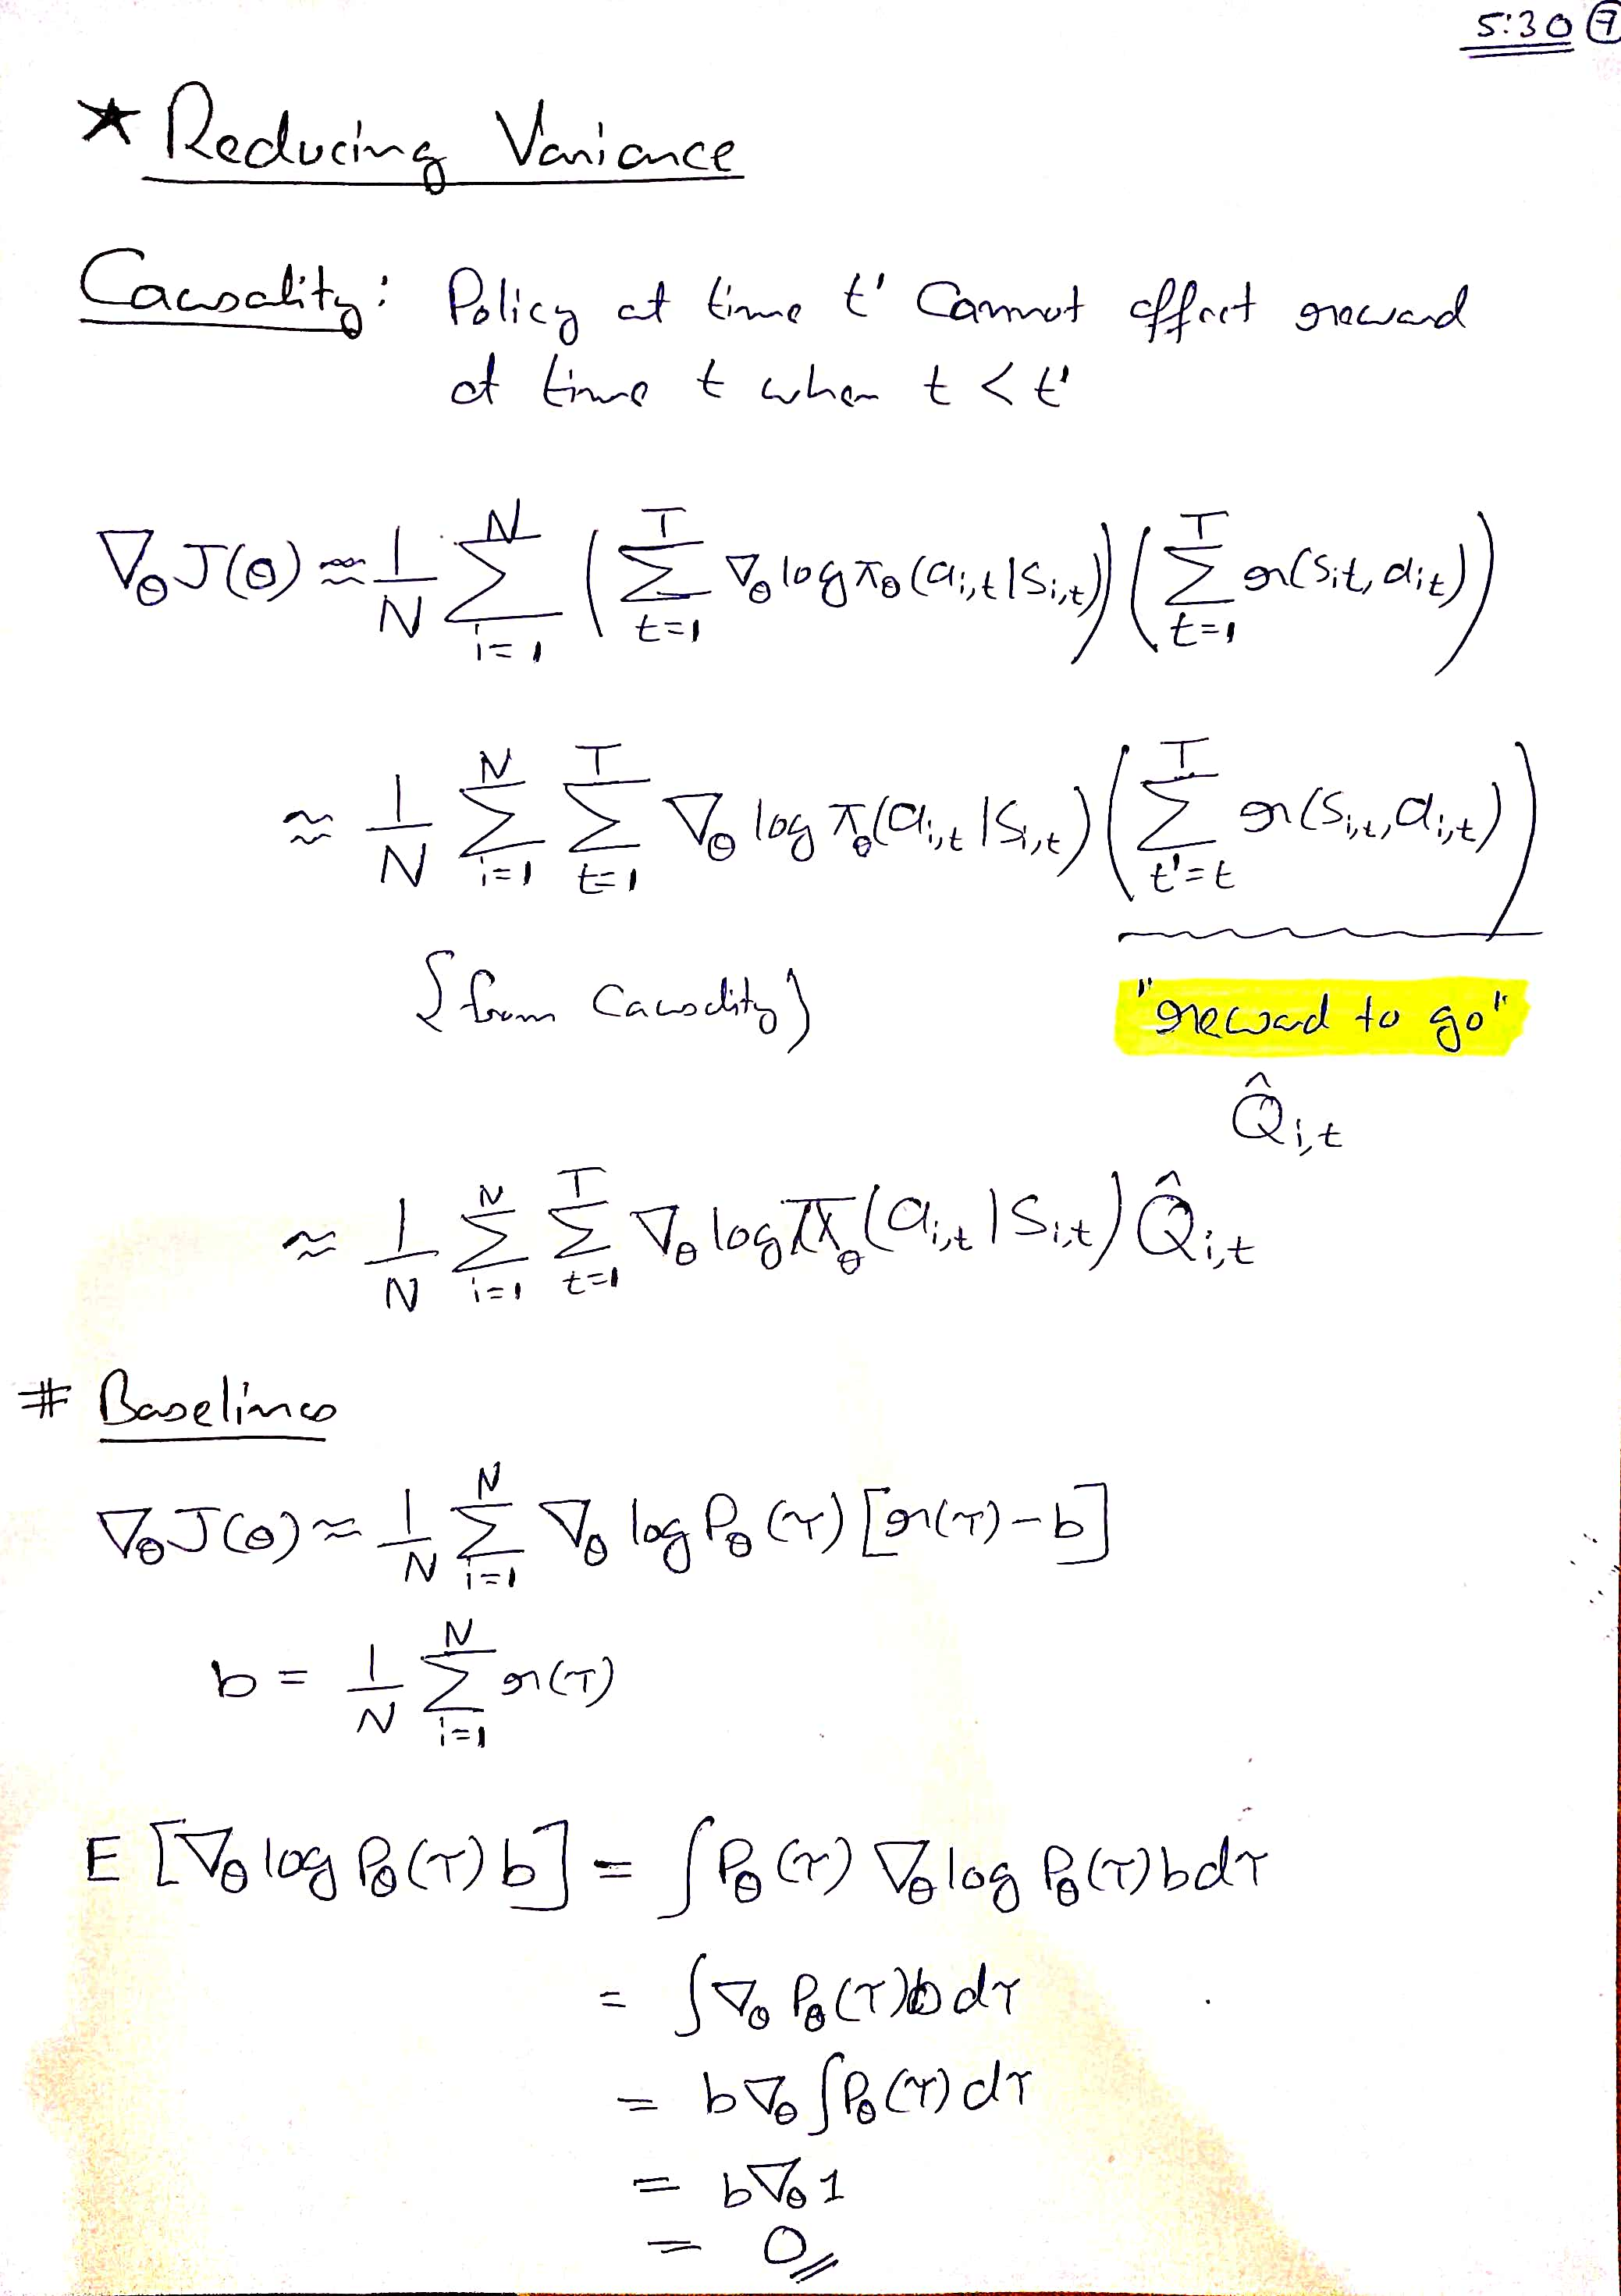 5:30 ⑦
★ Reducing Variance
Causality: Policy at time t' Cannot effect reward
at time t when t < t'
∇_θ J(θ) ≈ 1/N ∑_{i=1}^{N} (∑_{t=1}^{T} ∇_θ log π_θ(a_{i,t}|s_{i,t})) (∑_{t=1}^{T} r(s_{it}, a_{it}))
≈ 1/N ∑_{i=1}^{N} ∑_{t=1}^{T} ∇_θ log π_θ(a_{i,t}|s_{i,t}) (∑_{t'=t}^{T} r(s_{i,t}, a_{i,t}))
{from Causality} "reward to go"
Q̂_{i,t}
≈ 1/N ∑_{i=1}^{N} ∑_{t=1}^{T} ∇_θ log π_θ(a_{i,t}|s_{i,t}) Q̂_{i,t}
# Baselines
∇_θ J(θ) ≈ 1/N ∑_{i=1}^{N} ∇_θ log P_θ(τ) [r(τ) - b]
b = 1/N ∑_{i=1}^{N} r(τ)
E [∇_θ log P_θ(τ) b] = ∫ P_θ(τ) ∇_θ log P_θ(τ) b dτ
= ∫ ∇_θ P_θ(τ) b dτ
= b ∇_θ ∫ P_θ(τ) dτ
= b ∇_θ 1
= 0